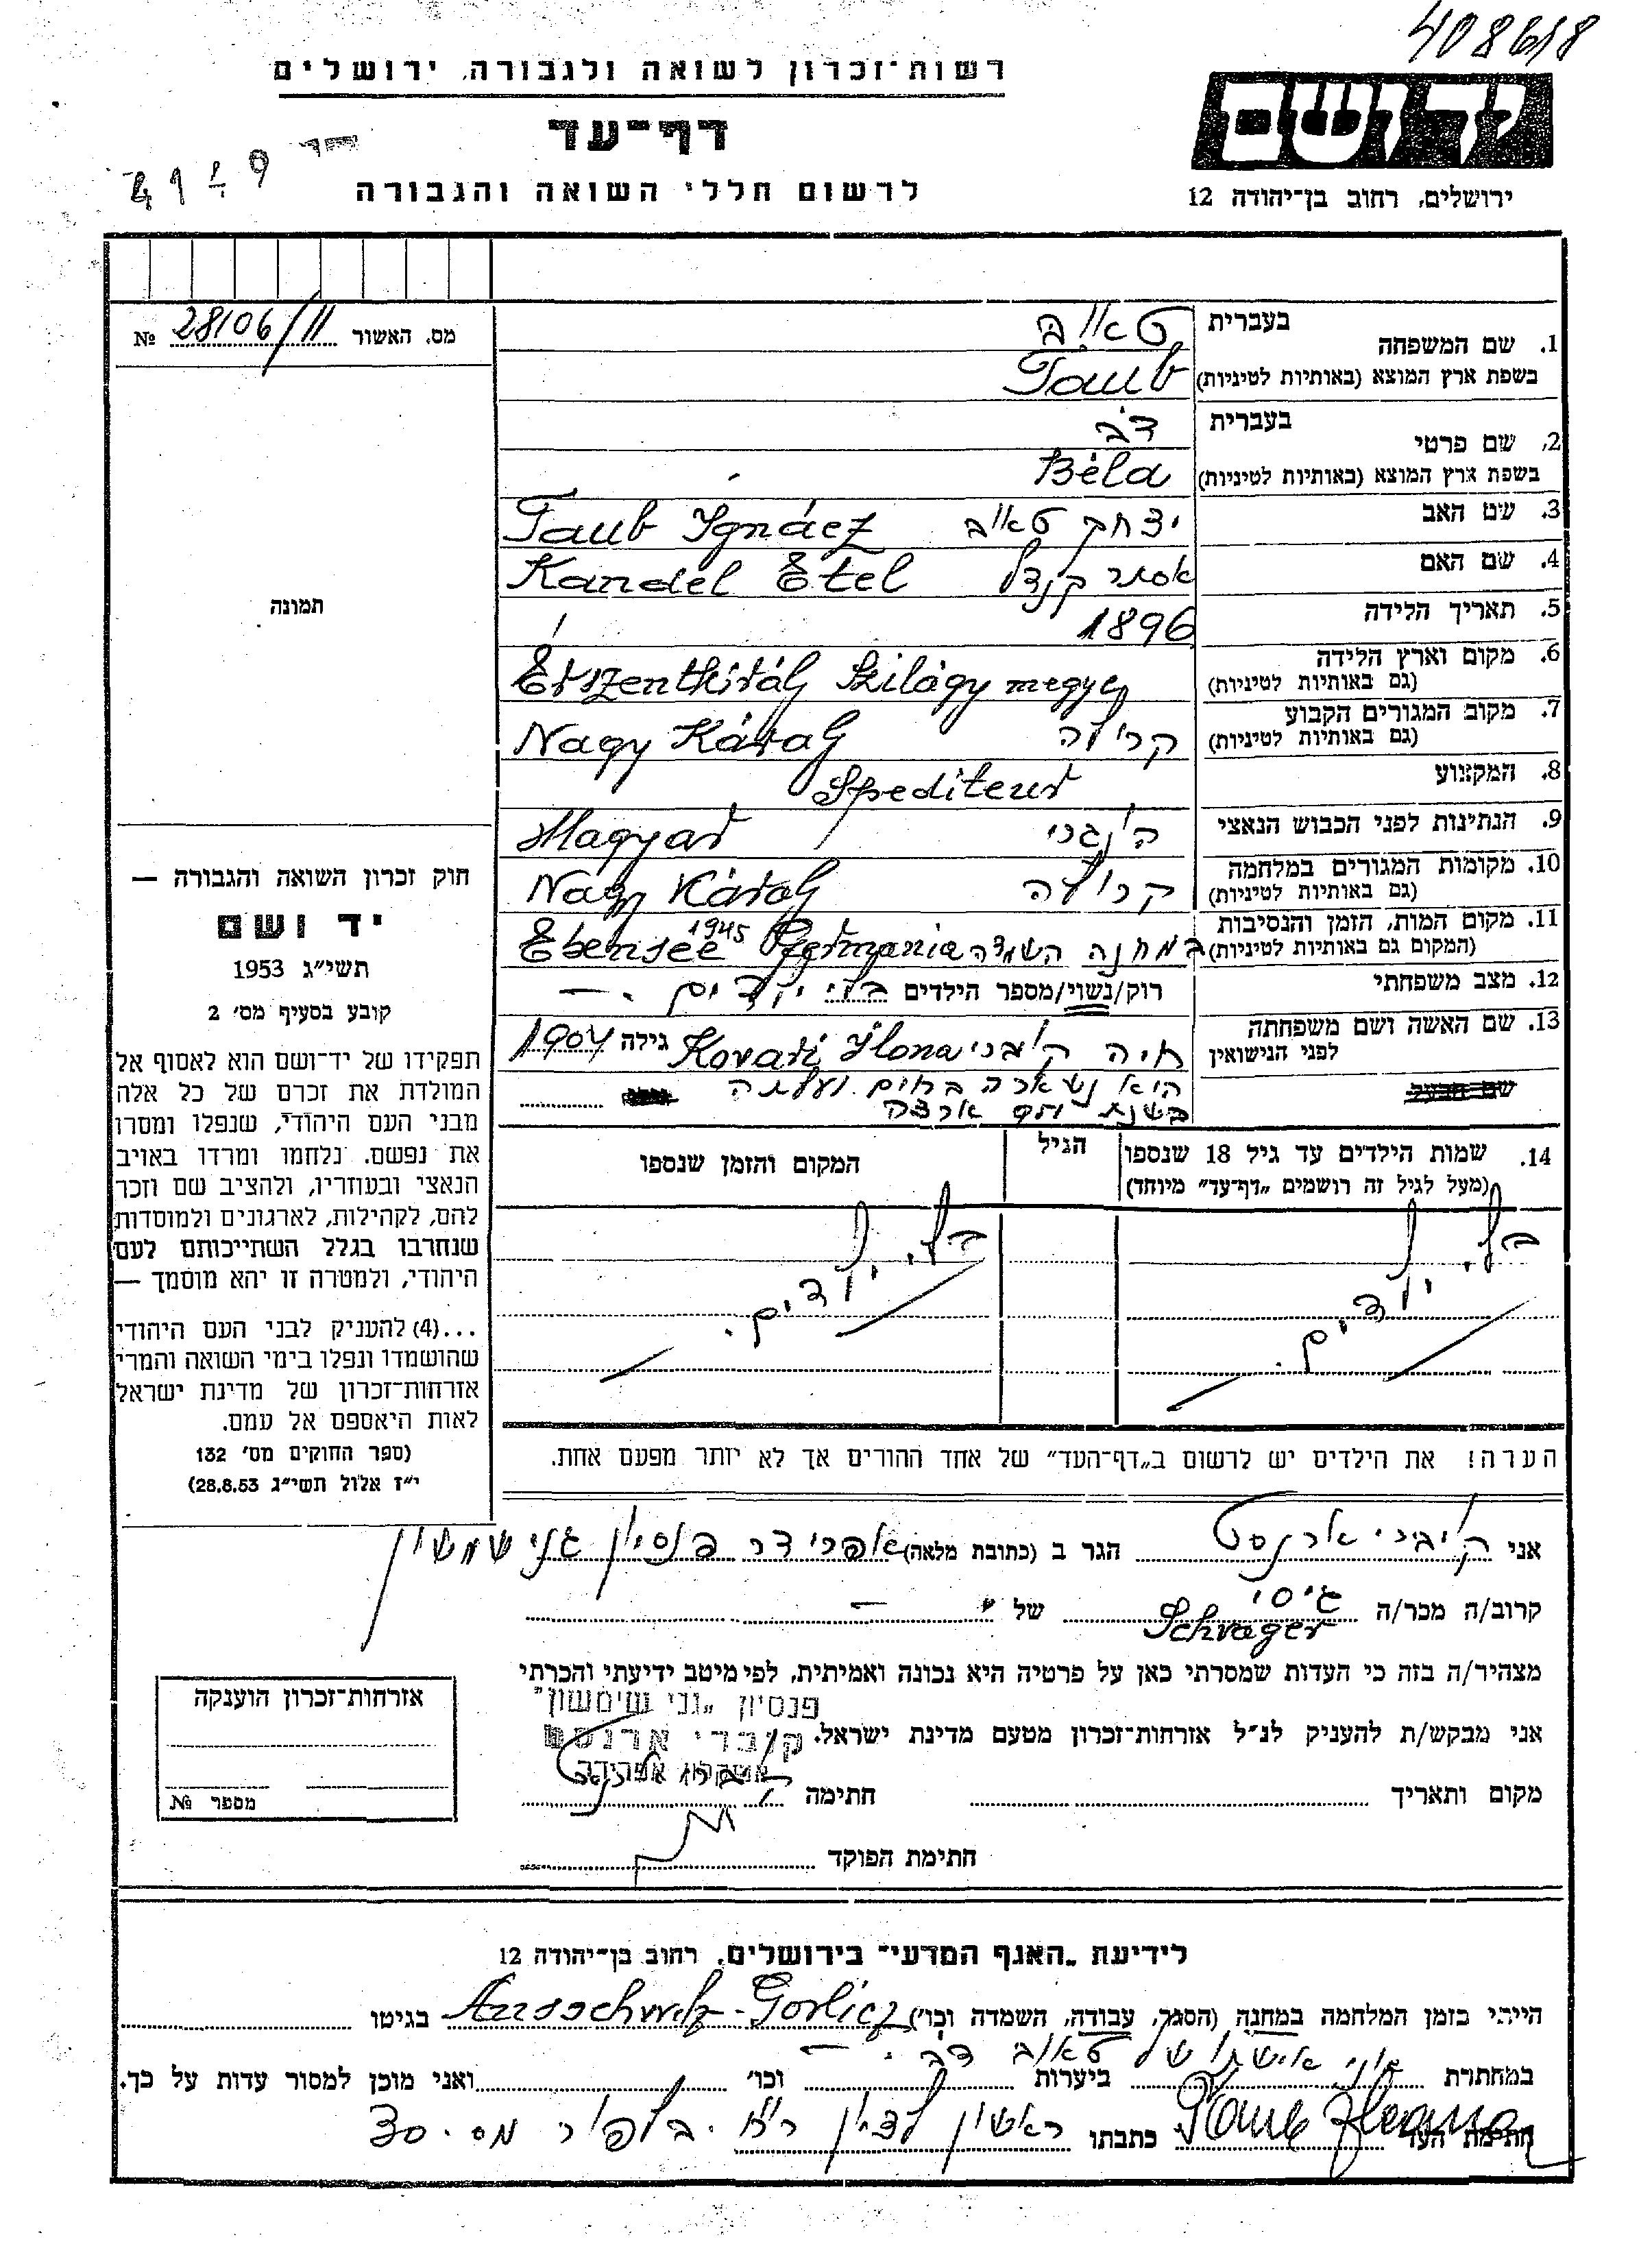 408618
רשות־זכרון לשואה ולגבורה, ירושלים
דף־עד
לרשום חללי השואה והגבורה
יד ושם
ירושלים, רחוב בן־יהודה 12
מס. האשור № 28106/11
1. שם המשפחה בעברית טאוב
בשפת ארץ המוצא (באותיות לטיניות) Taub
2. שם פרטי בעברית דב
בשפת ארץ המוצא (באותיות לטיניות) Béla
3. שם האב יצחק טאוב Taub Ignácz
4. שם האם אסתר קנדל Kandel Etel
5. תאריך הלידה 1896
6. מקום וארץ הלידה (גם באותיות לטיניות) Érszentkirály Szilágy megye
7. מקום המגורים הקבוע (גם באותיות לטיניות) קרולה Nagy Károly
8. המקצוע Spediteur
9. הנתינות לפני הכבוש הנאצי הונגרי Magyar
10. מקומות המגורים במלחמה (גם באותיות לטיניות) קרולה Nagy Károly
11. מקום המות, הזמן והנסיבות (המקום גם באותיות לטיניות) במחנה השמדה Ebensee 1945 Germania
12. מצב משפחתי רוק/נשוי/מספר הילדים בלי ילדים. —
13. שם האשה ושם משפחתה לפני הנישואין חיה קוברי Kovari Ilona גילה 1904
שם הבעל
היא נשארה בחיים ועלתה
בשנת ארצה
14. שמות הילדים עד גיל 18 שנספו (מעל לגיל זה רושמים „דף־עד” מיוחד)
הגיל
המקום והזמן שנספו
בלי ילדים.
בלי ילדים.
תמונה
חוק זכרון השואה והגבורה —
יד ושם
תשי״ג 1953
קובע בסעיף מס׳ 2
תפקידו של יד־ושם הוא לאסוף אל
המולדת את זכרם של כל אלה
מבני העם היהודי, שנפלו ומסרו
את נפשם. נלחמו ומרדו באויב
הנאצי ובעוזריו, ולהציב שם וזכר
להם, לקהילות, לארגונים ולמוסדות
שנחרבו בגלל השתייכותם לעם
היהודי, ולמטרה זו יהא מוסמך —
...(4) להעניק לבני העם היהודי
שהושמדו ונפלו בימי השואה והמרי
אזרחות־זכרון של מדינת ישראל
לאות היאספם אל עמם.
(ספר החוקים מס׳ 132
י״ז אלול תשי״ג 28.8.53)
הערה! את הילדים יש לרשום ב„דף־העד” של אחד ההורים אך לא יותר מפעם אחת.
אני קוברי ארנסט הגר ב (כתובת מלאה) אפרידר פנסיון גני שמשון
קרוב/ה מכר/ה גיסי Schvager של —
מצהיר/ה בזה כי העדות שמסרתי כאן על פרטיה היא נכונה ואמיתית, לפי מיטב ידיעתי והכרתי
אני מבקש/ת להעניק לנ״ל אזרחות־זכרון מטעם מדינת ישראל.
פנסיון „גני שימשון”
קוברי ארנסט
אשקלון אפרידר
מקום ותאריך
חתימה
חתימת הפוקד
אזרחות־זכרון הוענקה
מספר №
לידיעת „האגף המדעי” בירושלים, רחוב בן־יהודה 12
הייתי בזמן המלחמה במחנה (הסגר, עבודה, השמדה וכו׳) Ausschwitz-Gorlicz בגיטו
אני אישתו של טאוב דב. —
במחתרת ביערות וכו׳ ואני מוכן למסור עדות על כך.
חתימת העד Taub Ilona כתבתו ראשון לציון רח׳ בלפור מס. 30